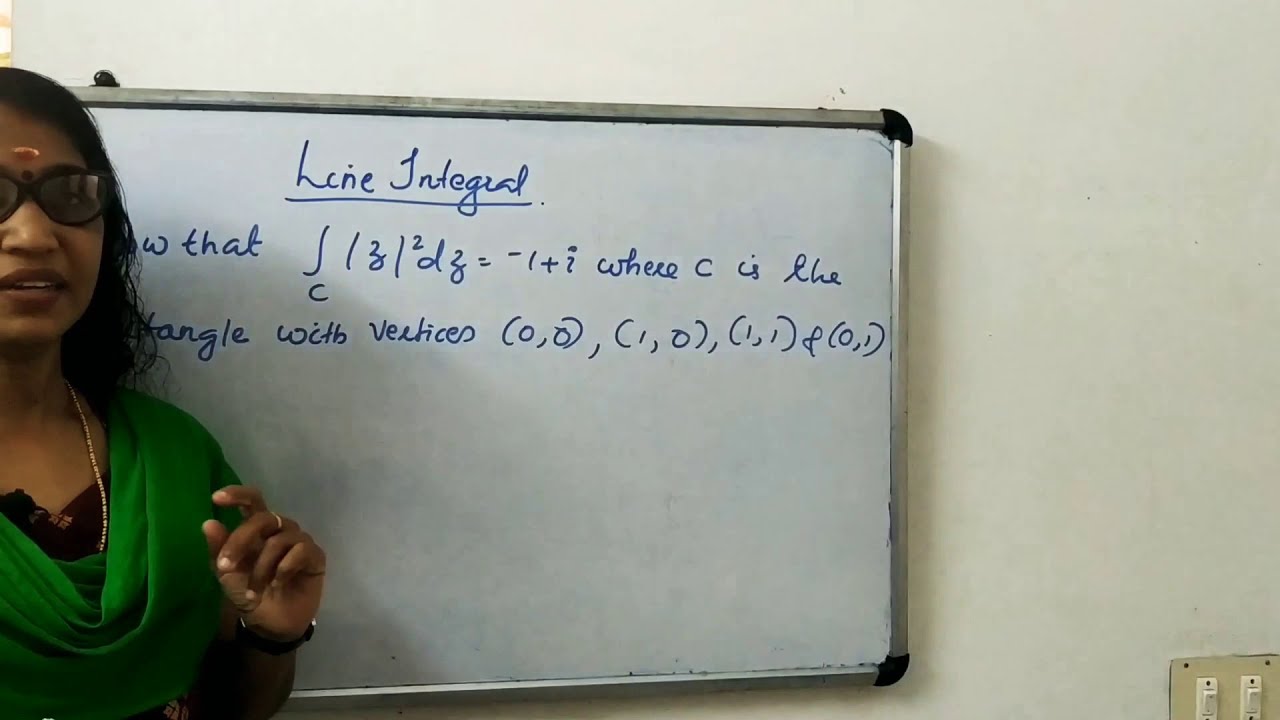 Line Integral.
ow that ∫_C |z|² dz = -1+i where C is the
tangle with vertices (0,0), (1,0), (1,1) & (0,1)